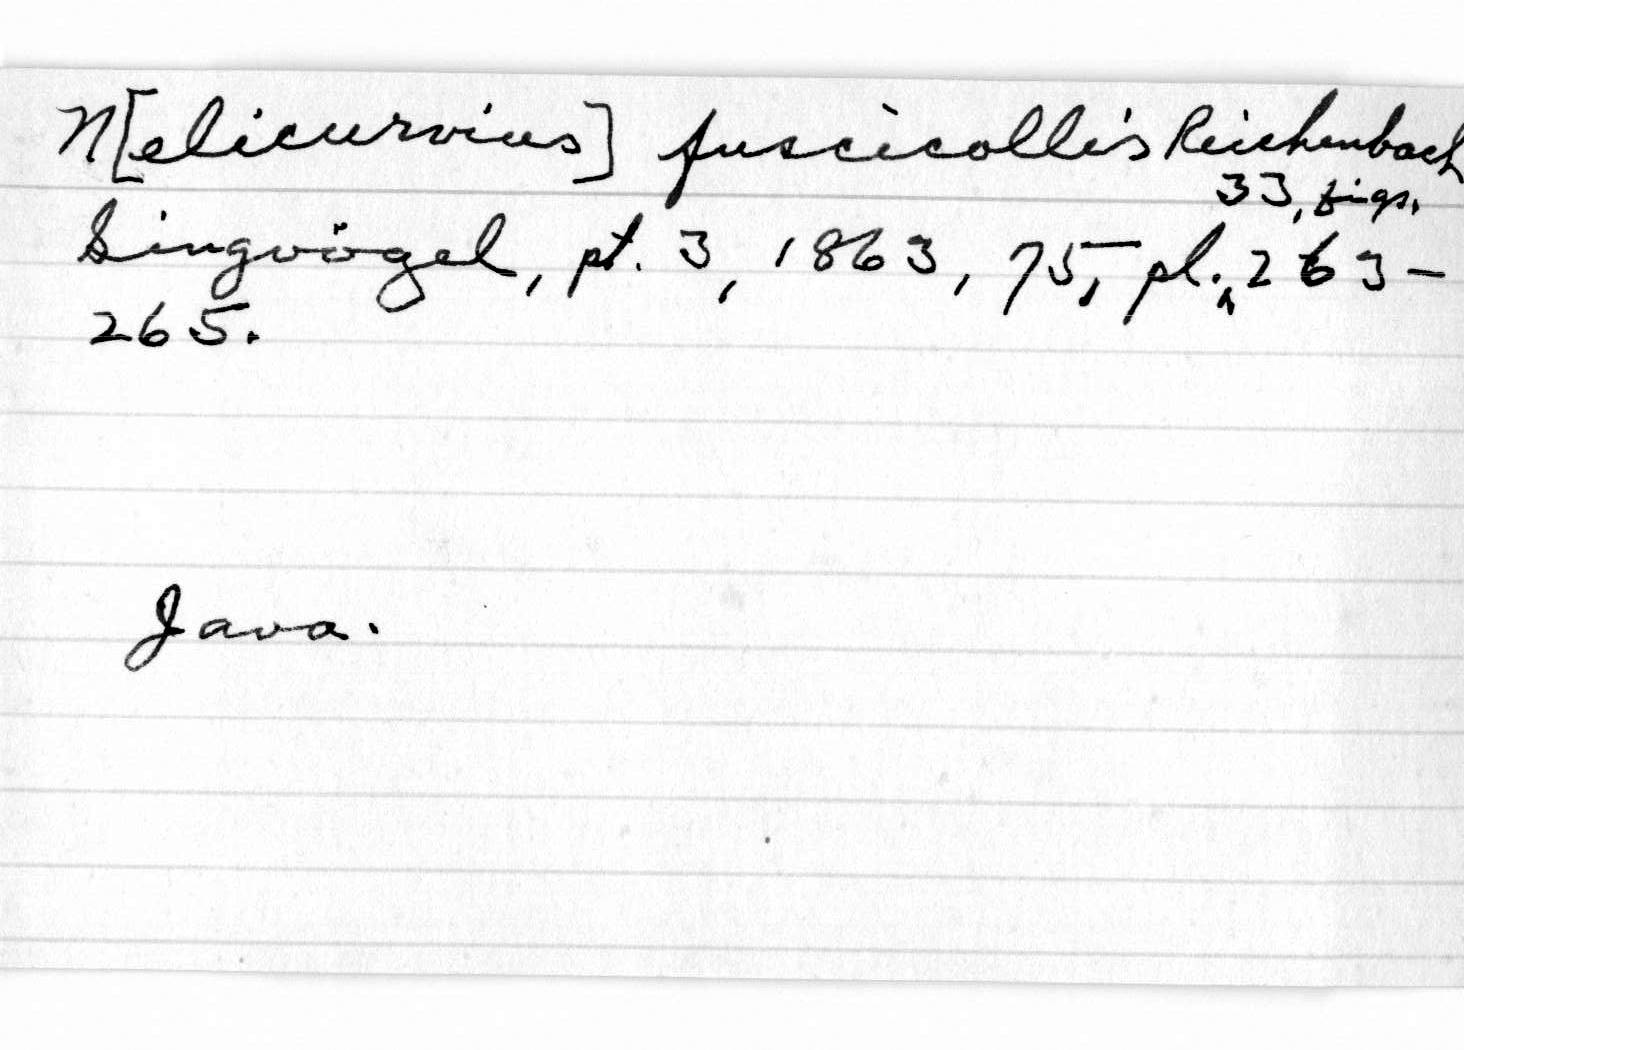 N[elicurvius] fuscicollis Reichenbach
33, figs.
Singvögel, pt. 3, 1863, 75, pl. ‸ 263-
265.
Java.